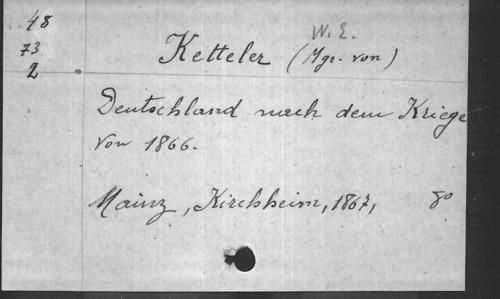 48
73
2
W. E.
Ketteler (Mgr. von)
Deutschland nach dem Kriege
von 1866.
Mainz, Kirchheim, 1867, 8o